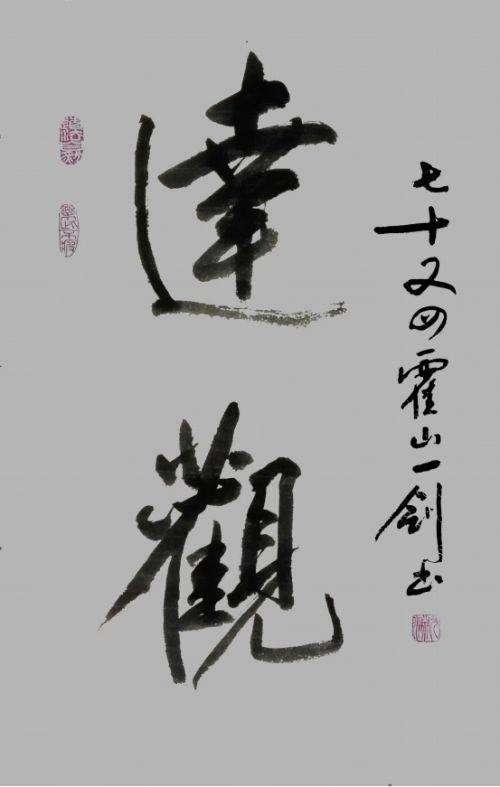 達觀
七十又四霍山一劍书